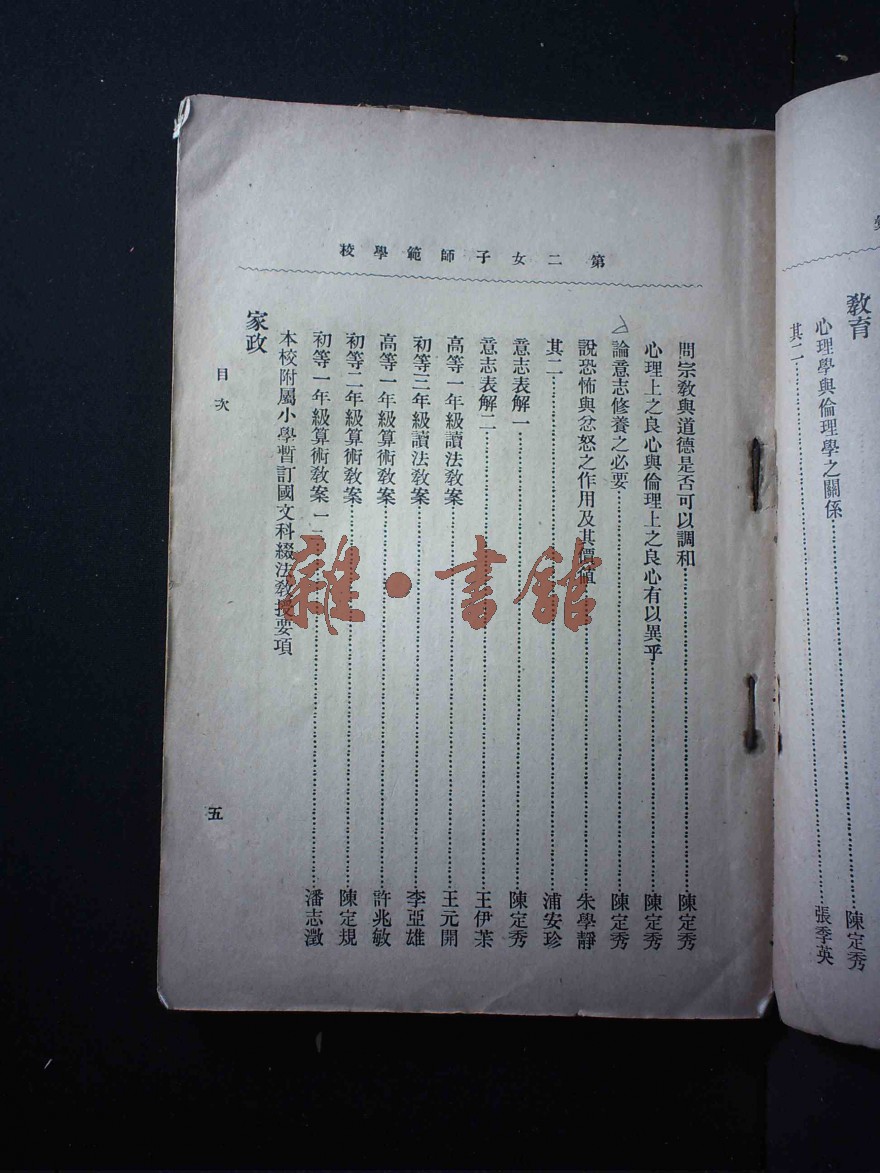 教育
心理學與倫理學之關係……陳定秀
其二……張季英
第二女子師範學校
問宗教與道德是否可以調和……陳定秀
心理上之良心與倫理上之良心有以異乎……陳定秀
論意志修養之必要……陳定秀
說恐怖與忿怒之作用及其價值……朱學靜
其二……浦安珍
意志表解一……陳定秀
意志表解二……王伊荃
高等一年級讀法教案……王元開
初等三年級讀法教案……李亞雄
高等一年級算術教案……許兆敏
初等二年級算術教案……陳定規
初等一年級算術教案一二……潘志澂
本校附屬小學暫訂國文科綴法教授要項
家政
目次
五
雜·書館